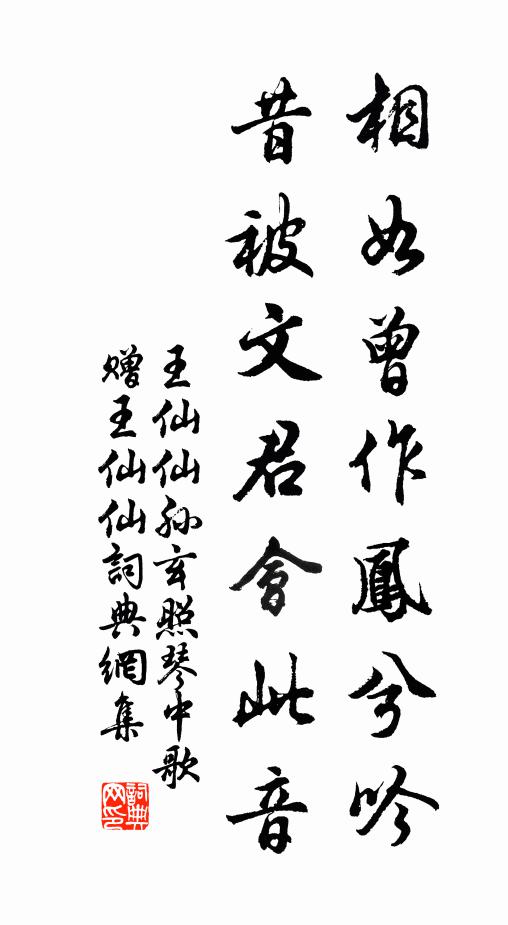 相如曾作鳳兮吟
昔被文君會此音
王仙仙孫玄照琴中歌
贈王仙仙詞典網集
詞典网印